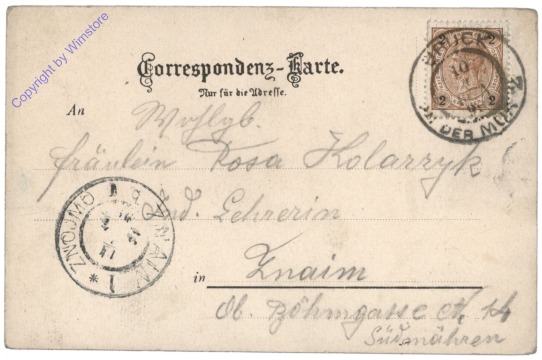 Copyright by Wimstore
Correspondenz-Karte.
Nur für die Adresse.
2 2
BRUCK
10
DER MUR
An Wohlgb.
Fräulein Rosa Kolarzyk
ind. Lehrerin
in Znaim
Ob. Böhmgasse N. 14
Südmähren
ZNAIM
ZNOJMO
1